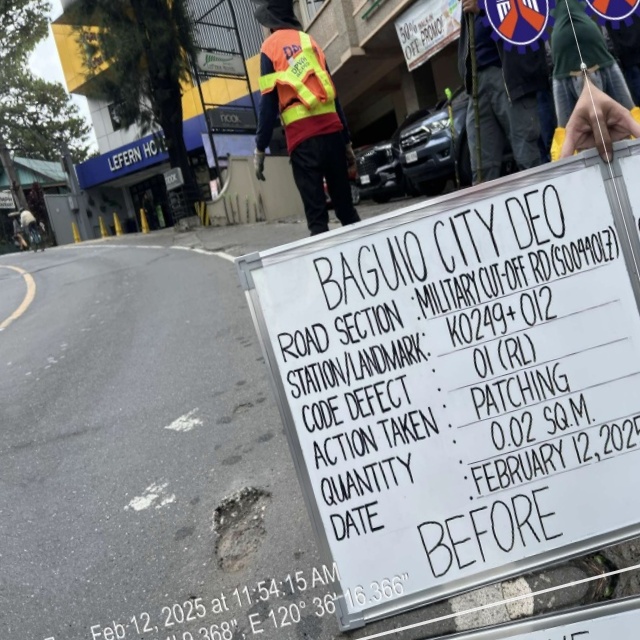 LEFERN HO
OFF PROMO
BAGUIO CITY DEO
ROAD SECTION : MILITARY CUT-OFF RD (S00440LZ)
STATION/LANDMARK: K0249+012
CODE DEFECT : 01 (RL)
ACTION TAKEN : PATCHING
QUANTITY : 0.02 SQ.M.
DATE : FEBRUARY 12, 2025
BEFORE
Feb 12, 2025 at 11:54:15 AM
0.368", E 120° 36' 16.366"